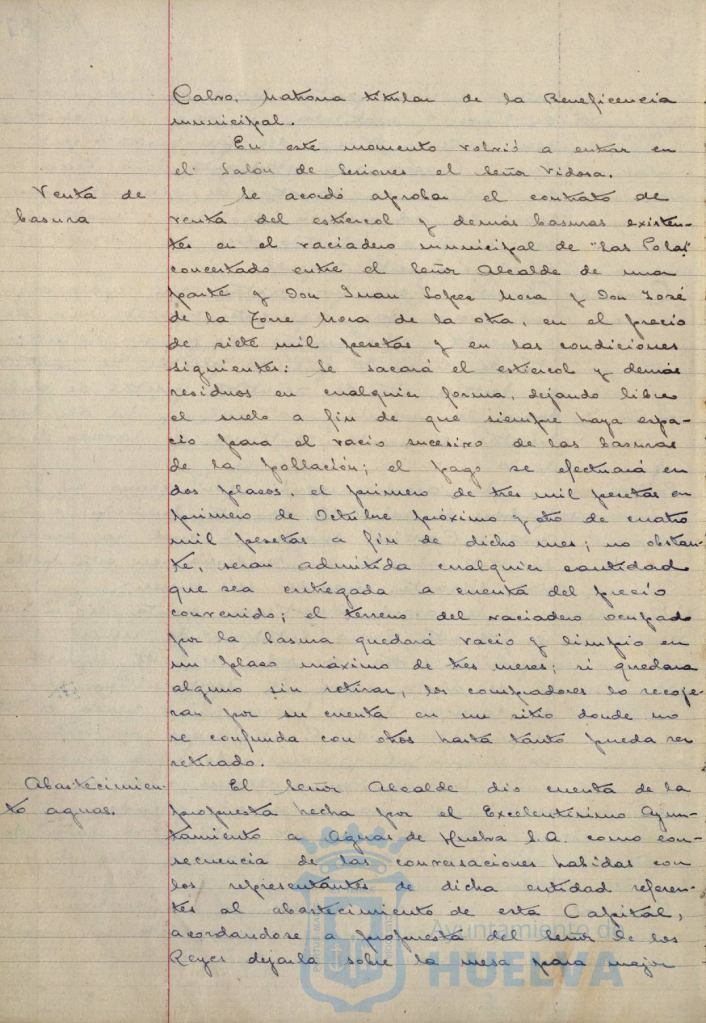 Calvo, Matrona titular de la Beneficencia
municipal.
En este momento volvió a entrar en
el Salón de Sesiones el Señor Vidosa.
Venta de
basura
Se acordó aprobar el contrato de
venta del estiercol y demás basuras existen-
tes en el vaciadero municipal de "Las Polas"
concertado entre el Señor Alcalde de una
parte y Don Juan Lopez Mora y Don José
de la Torre Mora de la otra, en el precio
de siete mil pesetas y en las condiciones
siguientes: Se sacará el estiercol y demás
residuos en cualquier forma, dejando libre
el suelo a fin de que siempre haya espa-
cio para el vacio sucesivo de las basuras
de la población; el pago se efectuará en
dos plazos, el primero de tres mil pesetas en
primero de Octubre próximo y otro de cuatro
mil pesetas a fin de dicho mes; no obstan-
te, seran admitida cualquier cantidad
que sea entregada a cuenta del precio
convenido; el terreno del vaciadero ocupado
por la basura quedará vacio y limpio en
un plazo máximo de tres meses; si quedara
alguno sin retirar, los compradores lo recoge-
ran por su cuenta en un sitio donde no
se confunda con otros hasta tanto pueda ser
retirado.
Abastecimien-
to aguas.
El Señor Alcalde dio cuenta de la
propuesta hecha por el Excelentísimo Ayun-
tamiento a Aguas de Huelva S.A. como con-
secuencia de las conversaciones habidas con
los representantes de dicha entidad referen-
tes al abastecimiento de esta Capital,
acordandose a propuesta del Señor de los
Reyes dejarla sobre la mesa para mejor
Ayuntamiento de
HUELVA